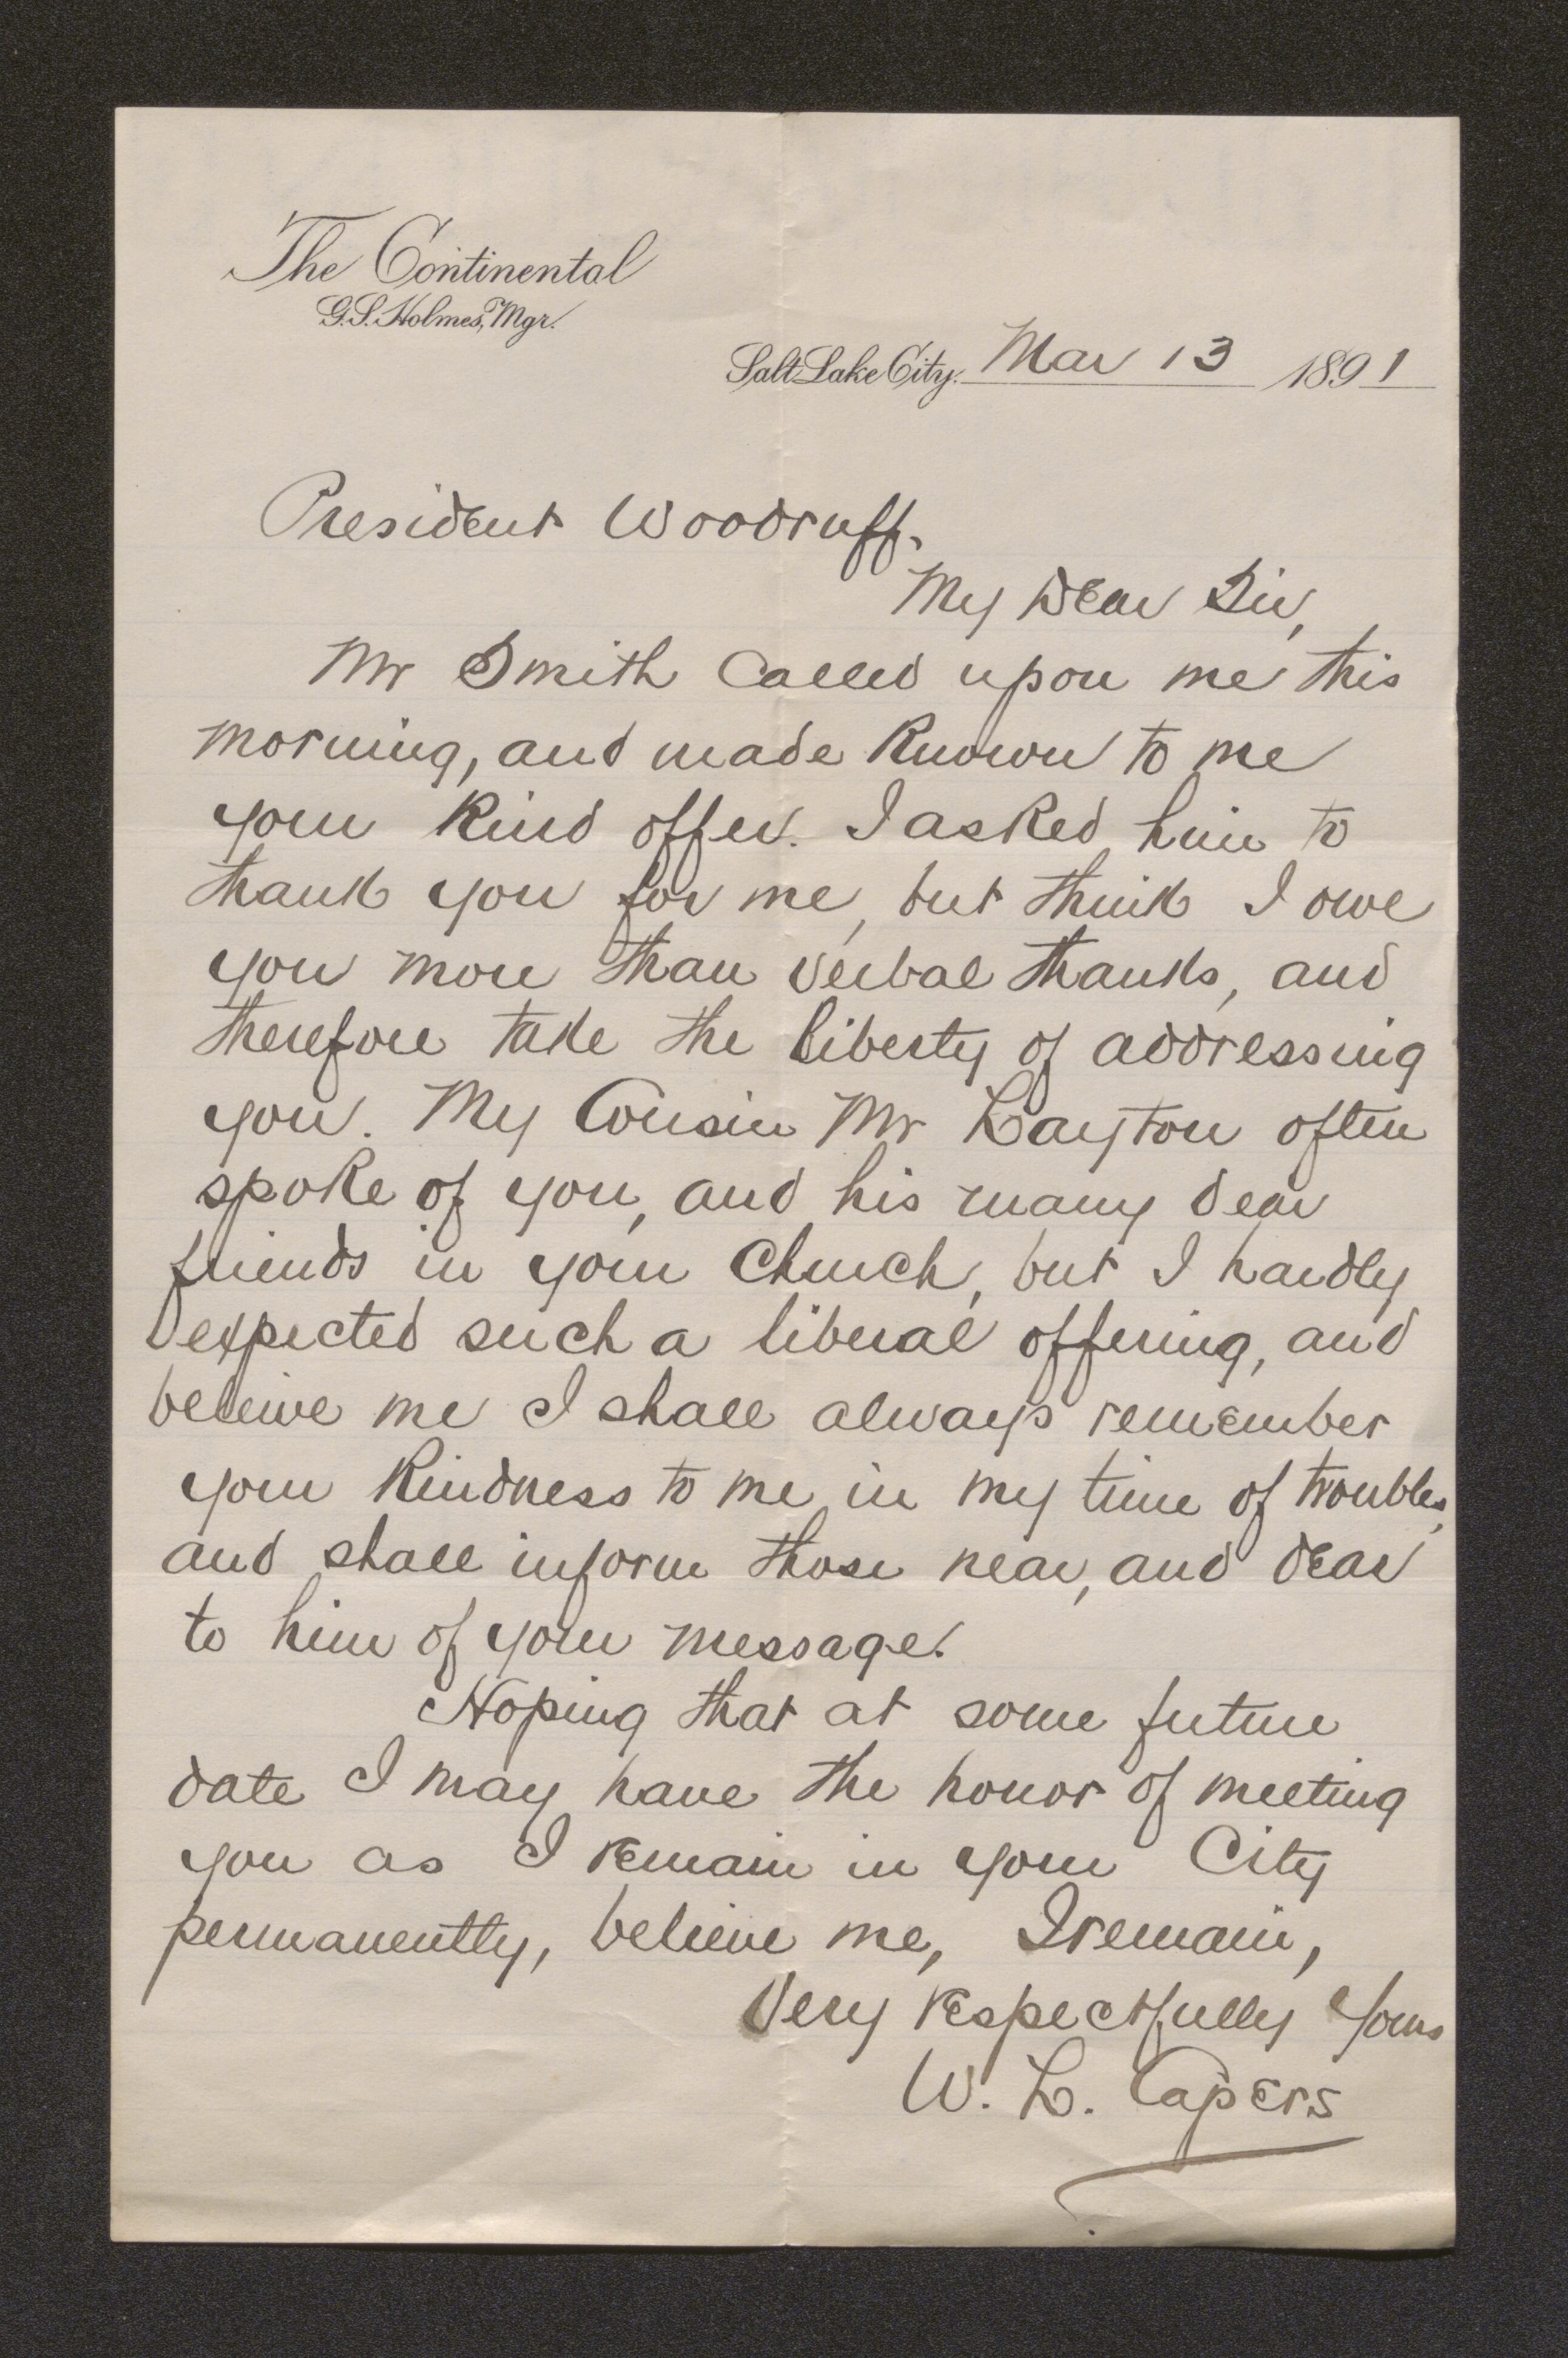 The Continental
G.S. Holmes, Mgr.
Salt Lake City. Mar 13 1891
President Woodruff.
My Dear Sir,
Mr Smith Called upon me this
morning, and made Known to me
your Kind offer. I asked him to
thank you for me, but think I owe
you more than verbal thanks, and
therefore take the liberty of addressing
you. My Cousin Mr Layton often
spoke of you, and his many dear
friends in your Church, but I hardly
expected such a liberal offering, and
beleive me I shall always remember
your Kindness to me in my time of troubles,
and shall inform those near, and dear
to him of your message.
Hoping that at some future
date I may have the honor of meeting
you as I remain in your City
permanently, believe me, I remain,
Very respectfully Yours
W. L. Capers